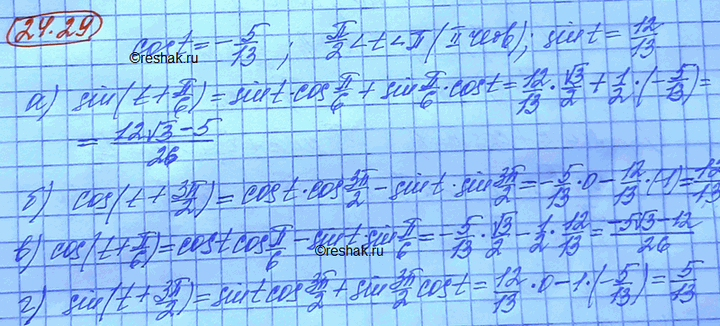 24.29
cos t = -5/13 ; π/2 < t < π (II четв); sin t = 12/13
©reshak.ru
а) sin(t + π/6) = sin t · cos π/6 + sin π/6 · cos t = 12/13 · √3/2 + 1/2 · (-5/13) =
= (12√3 - 5)/26
б) cos(t + 3π/2) = cos t · cos 3π/2 - sin t · sin 3π/2 = -5/13 · 0 - 12/13 · (-1) = 12/13
в) cos(t + π/6) = cos t cos π/6 - sin t · sin π/6 = -5/13 · √3/2 - 1/2 · 12/13 = (-5√3 - 12)/26
©reshak.ru
г) sin(t + 3π/2) = sin t cos 3π/2 + sin 3π/2 cos t = 12/13 · 0 - 1 · (-5/13) = 5/13